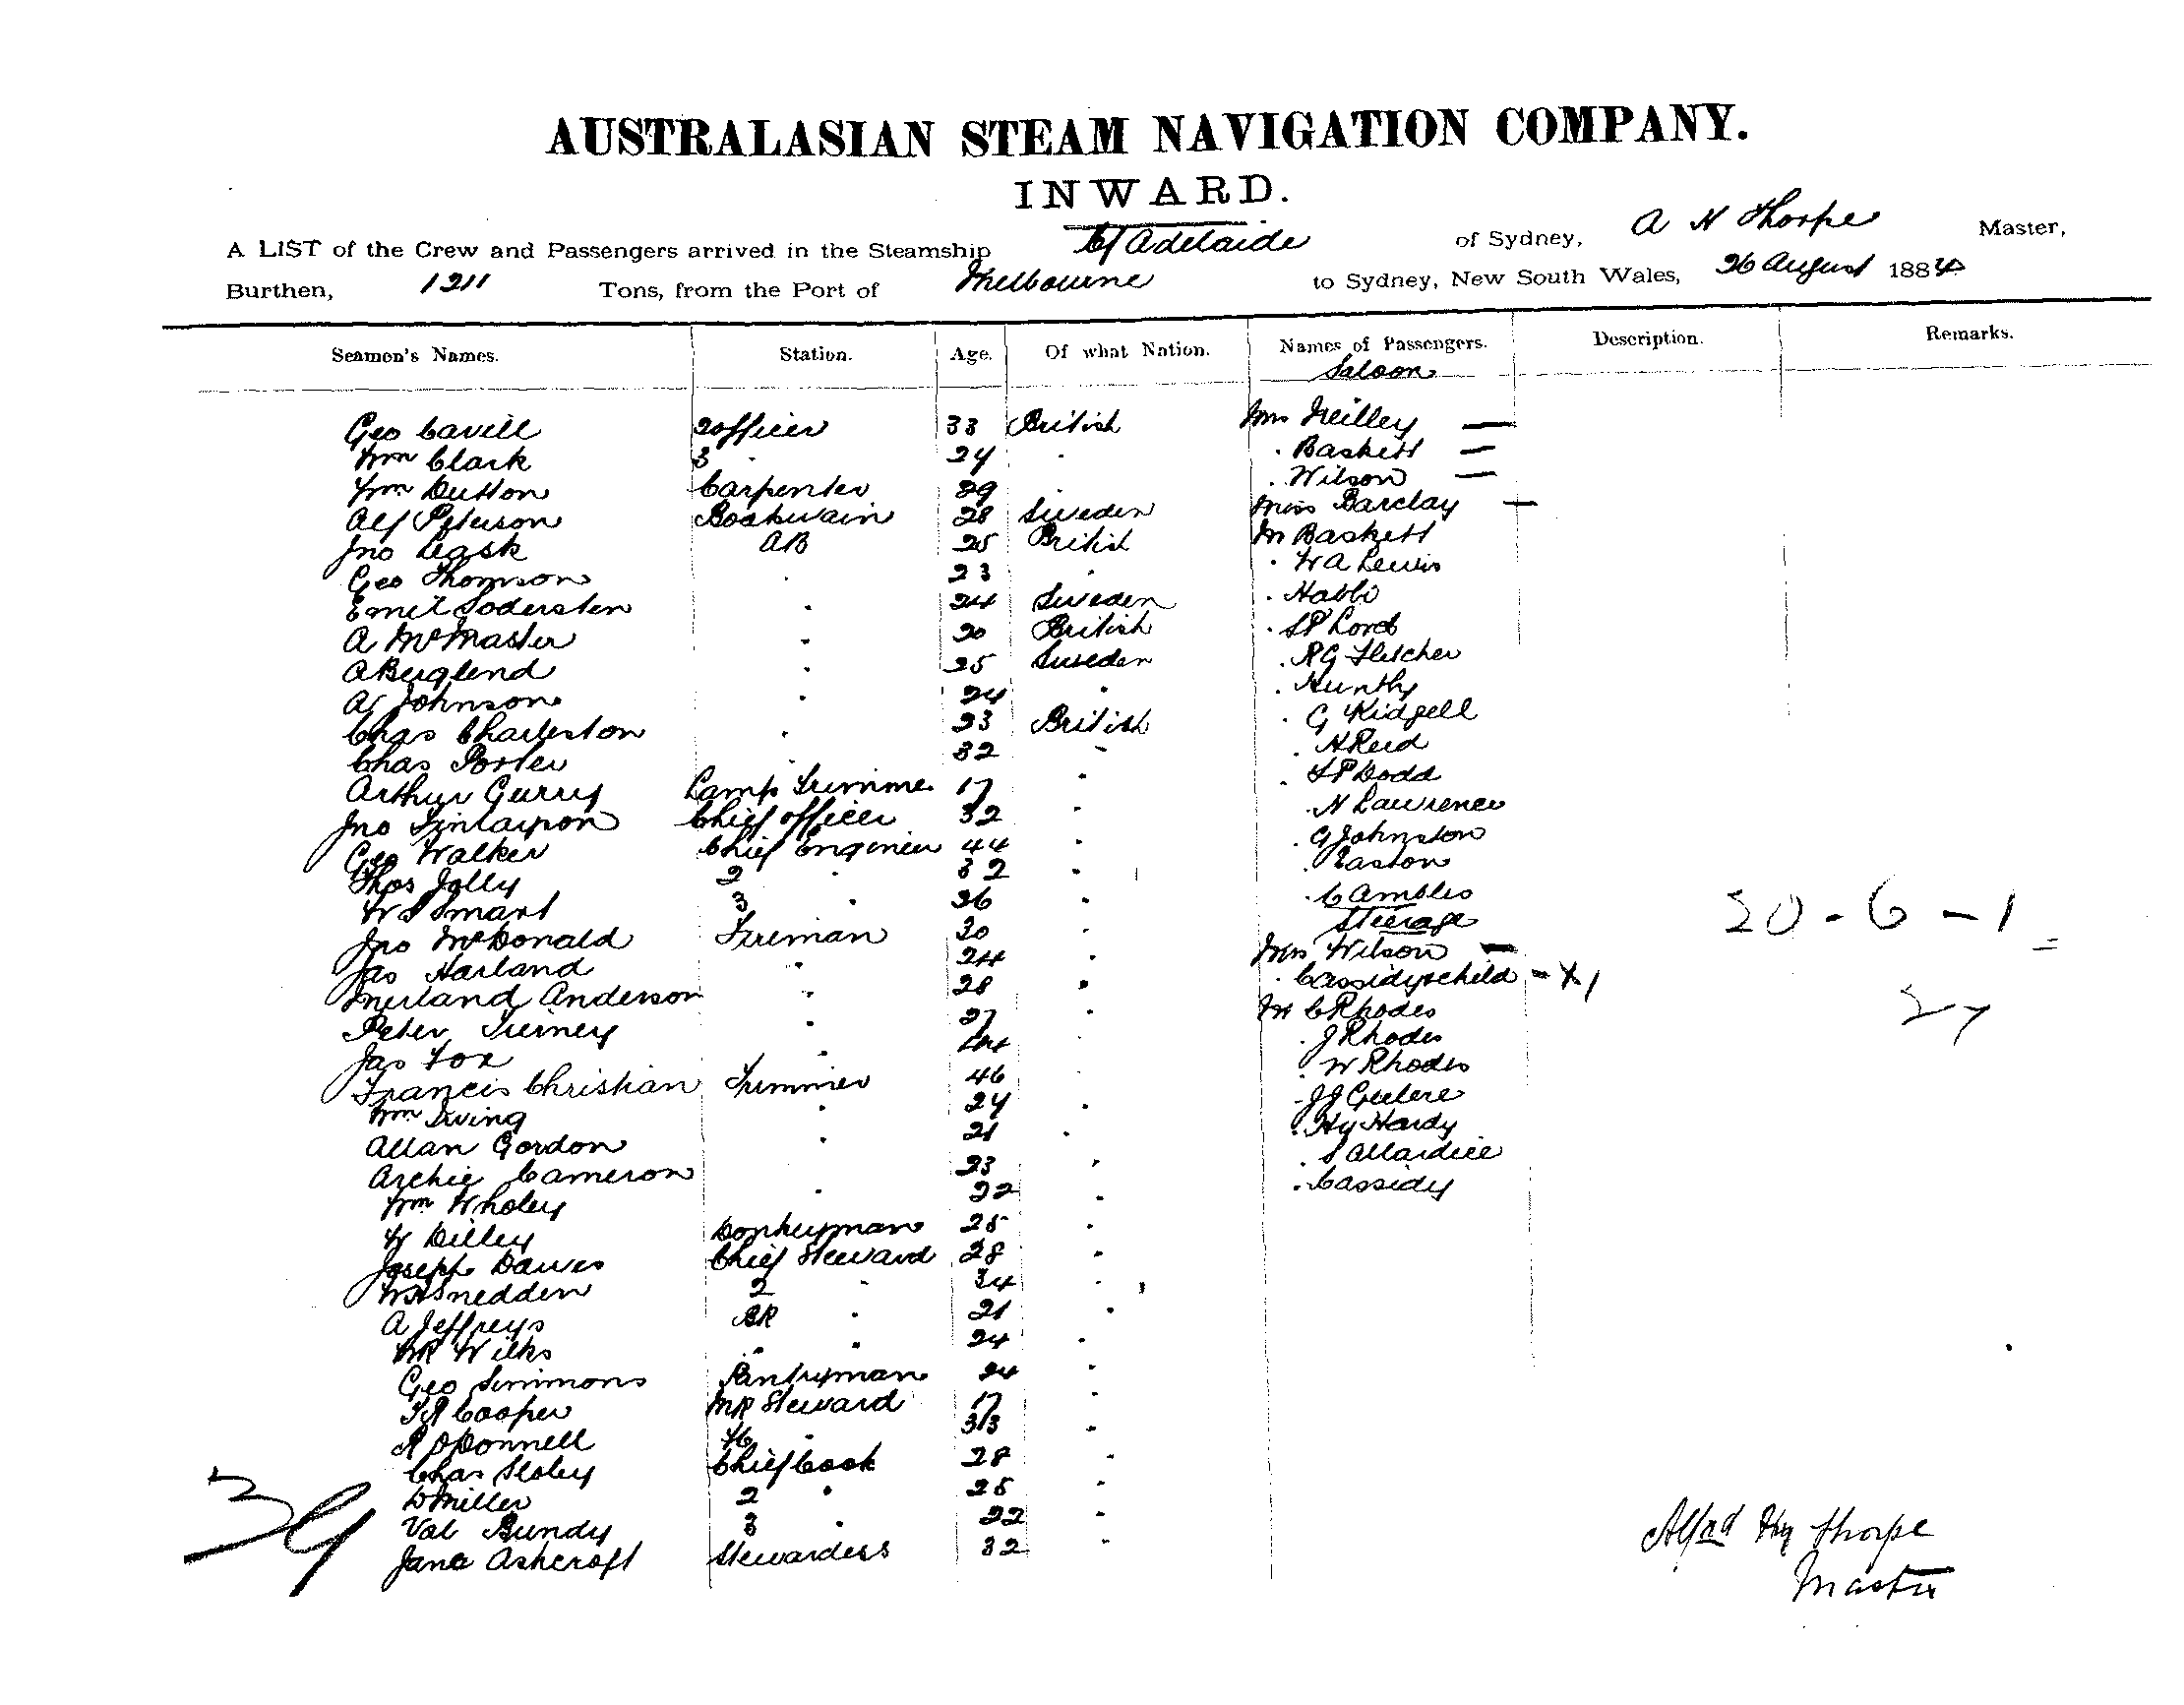 AUSTRALASIAN STEAM NAVIGATION COMPANY.
INWARD.
A LIST of the Crew and Passengers arrived in the Steamship C/ Adelaide of Sydney, A H Thorpe Master,
Burthen, 1211 Tons, from the Port of Melbourne to Sydney, New South Wales, 26 August 1884
Seamen's Names. Station. Age. Of what Nation. Names of Passengers. Description. Remarks.
Saloon
Geo Cavill 2 officer 33 British Mrs Neilley —
Wm Clark 3 " 24 " " Baskett —
Wm Dutton Carpenter 29 " Wilson —
Alf Peterson Boatswain 28 Sweden Miss Barclay —
Jno Leask AB 25 British Mr Baskett
Geo Thomson " 23 " " W A Lewis
Emil Södersten " 24 Sweden " Habbi
A McMaster " 20 British " S P Lord
A Berglend " 25 Sweden " R G Fletcher
A Johnson " 24 " "
Chas Charleston " 23 British " G Kidgell
Chas Porter " 32 " " H Reid
Arthur Gurry Lamp Trimmer 17 " " S P Dodd
Jno Finlayson Chief officer 32 " " H Lawrence
Geo Walker Chief Engineer 44 " " G Johnston
Thos Jolly 2 " 32 " " Easton
W S Smart 3 " 26 " " C Ambles
Steerage
Jno McDonald Fireman 30 " Mrs Wilson —
Jas Harland " 24 " " Cassidy & child — X 1
Anderson " 28 " Mr C Rhodes
Peter Tierney " 27 " " J Rhodes
Jas Fox " 44 " W Rhodes
Francis Christian Trimmer 46 " J J
Wm Irving " 24 " " Hy Hardy
Allan Gordon " 21 " " S Allardice
Archie Cameron 23 " " Cassidy
Wm Wholey " 22 "
W Dilley Donkeyman 25 "
Joseph Dawes Chief Steward 28 "
W Snedden 2 " 34 "
A Jeffreys BR " 21 "
W R Wilks " " 24 "
Geo Simmons Pantryman 24 "
T R Cooper MR Steward 17 "
R O'Donnell " 33 "
Chas Sloley Chief Cook 28 "
D Miller 2 " 25 "
Val Bundy 3 " 22 "
Jane Ashcroft Stewardess 32 "
39
20 - 6 - 1 =
27
Alfrd Hy Thorpe
Master